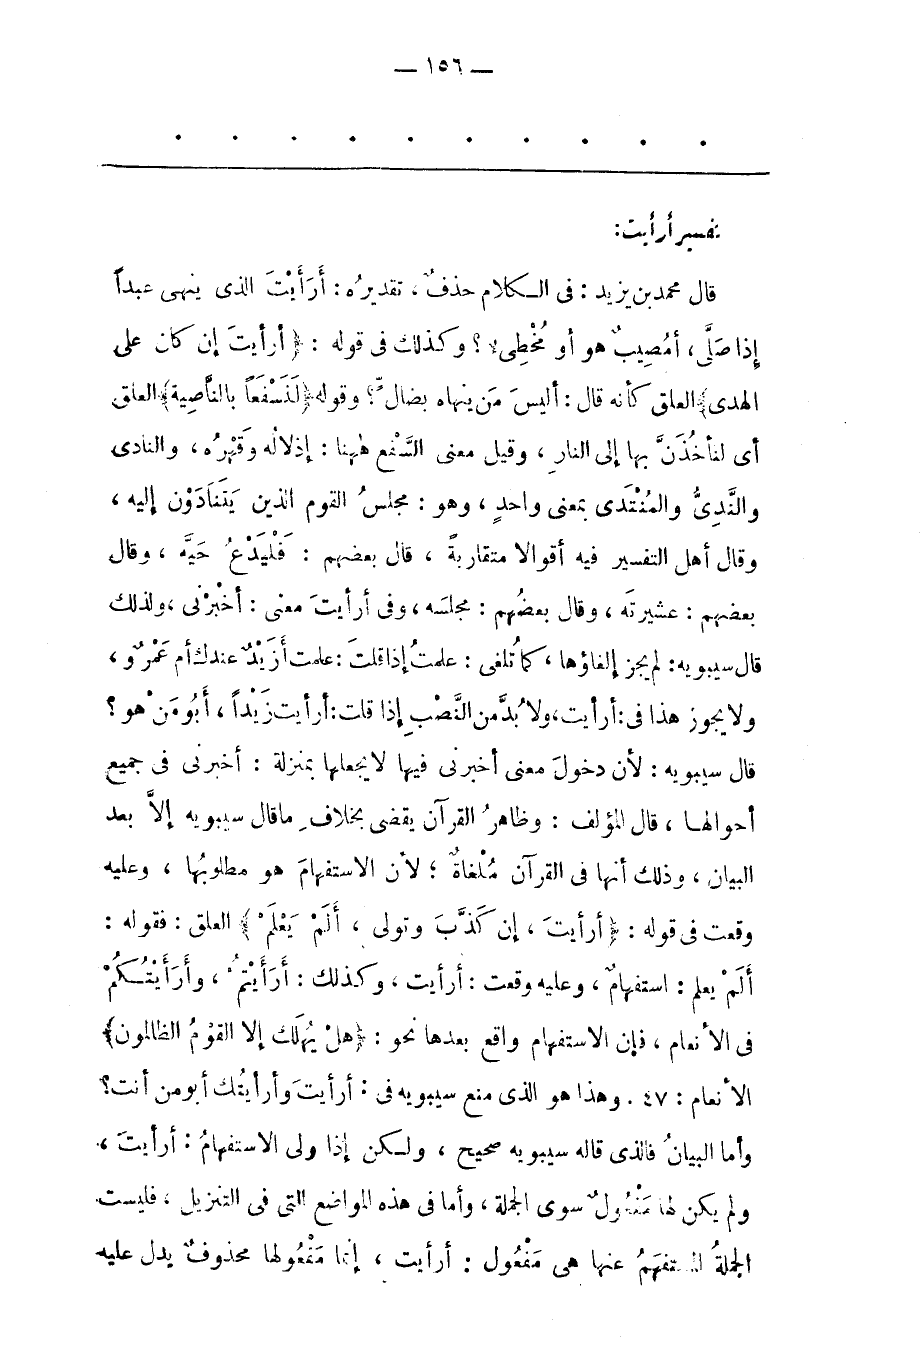 — ١٥٦ —
تفسير أرأيت:
قال محمد بن يزيد : فى الـكلام حذفٌ ، تقديرُه : أَرَأَيْتَ الذى ينهى عبداً
إِذا صَلَّى ، أمُصِيبٌ هو أو مُخْطِىء ؟ وكذلك فى قوله : ﴿ أرأيتَ إن كان على
الهدى﴾ العلق كأنه قال : أليسَ مَن ينهاه بضالّ ؟ وقوله ﴿لَنَسْفَعَاً بالنَّاصية﴾ العلق
أى لنأخُذَنَّ بها إلى النار ، وقيل معنى السَّفْع هٰهنا : إذلالُه وقَهْرُه ، والنادى
والنَّدِىُّ والمُنْتَدَى بمعنى واحدٍ ، وهو : مجلسُ القوم الذين يَتَنَادَوْن إليه ،
وقال أهل التفسير فيه أقوالا متقاربةً ، قال بعضهم : فَلْيَدْعُ حَيَّه ، وقال
بعضهم : عشيرتَه ، وقال بعضُهم : مجلسَه ، وفى أرأيتَ معنى : أخبرْنى ، ولذلك
قال سيبويه : لم يجز إلغاؤها ، كما تُلغى : علمتُ إذا قلتَ : علمت أَزَيْدٌ عندك أم عَمْرٌو ،
ولا يجوز هذا فى : أرأيت ، ولا بُدَّ من النَّصْبِ إذا قلت : أرأيت زَيْداً ، أَبُو مَنْ هو ؟
قال سيبويه : لأن دخولَ معنى أخبرنى فيها لا يجعلها بمنزلة : أخبرنى فى جميع
أحوالهـا ، قال المؤلف : وظاهرُ القرآن يقضى بخلافِ ماقال سيبويه إلاَّ بعد
البيان ، وذلك أنها فى القرآن مُلْغاةٌ ؛ لأن الاستفهامَ هو مطلوبُها ، وعليه
وقعت فى قوله : ﴿ أرأيتَ ، إن كَذَّبَ وتولى ، أَلَمْ يَعْلَمْ ﴾ العلق : فقوله :
أَلَمْ يعلم : استفهامٌ ، وعليه وقعت : أرأيت ، وكذلك : أَرَأَيْتُمْ ، وأَرَأَيْتُـكُمْ
فى الأنعام ، فإن الاستفهام واقع بعدها نحو : ﴿هلْ يُهلَك إلا القوْمُ الظالمون﴾
الأنعام : ٤٧ . وهذا هو الذى منع سيبويه فى : أرأيتَ وأرأيتُك أبو من أنت؟
وأما البيانُ فالذى قاله سيبويه صحيح ، ولـكن إذا ولى الاستفهامُ : أرأيتَ ،
ولم يكن لها مَفْعُولٌ سوى الجملة ، وأما فى هذه المواضع التى فى التنزيل ، فليست
الجملةُ المستفهَمُ عنها هى مَفْعُول : أرأيت ، إنما مَفْعُولها محذوفٌ يدل عليه